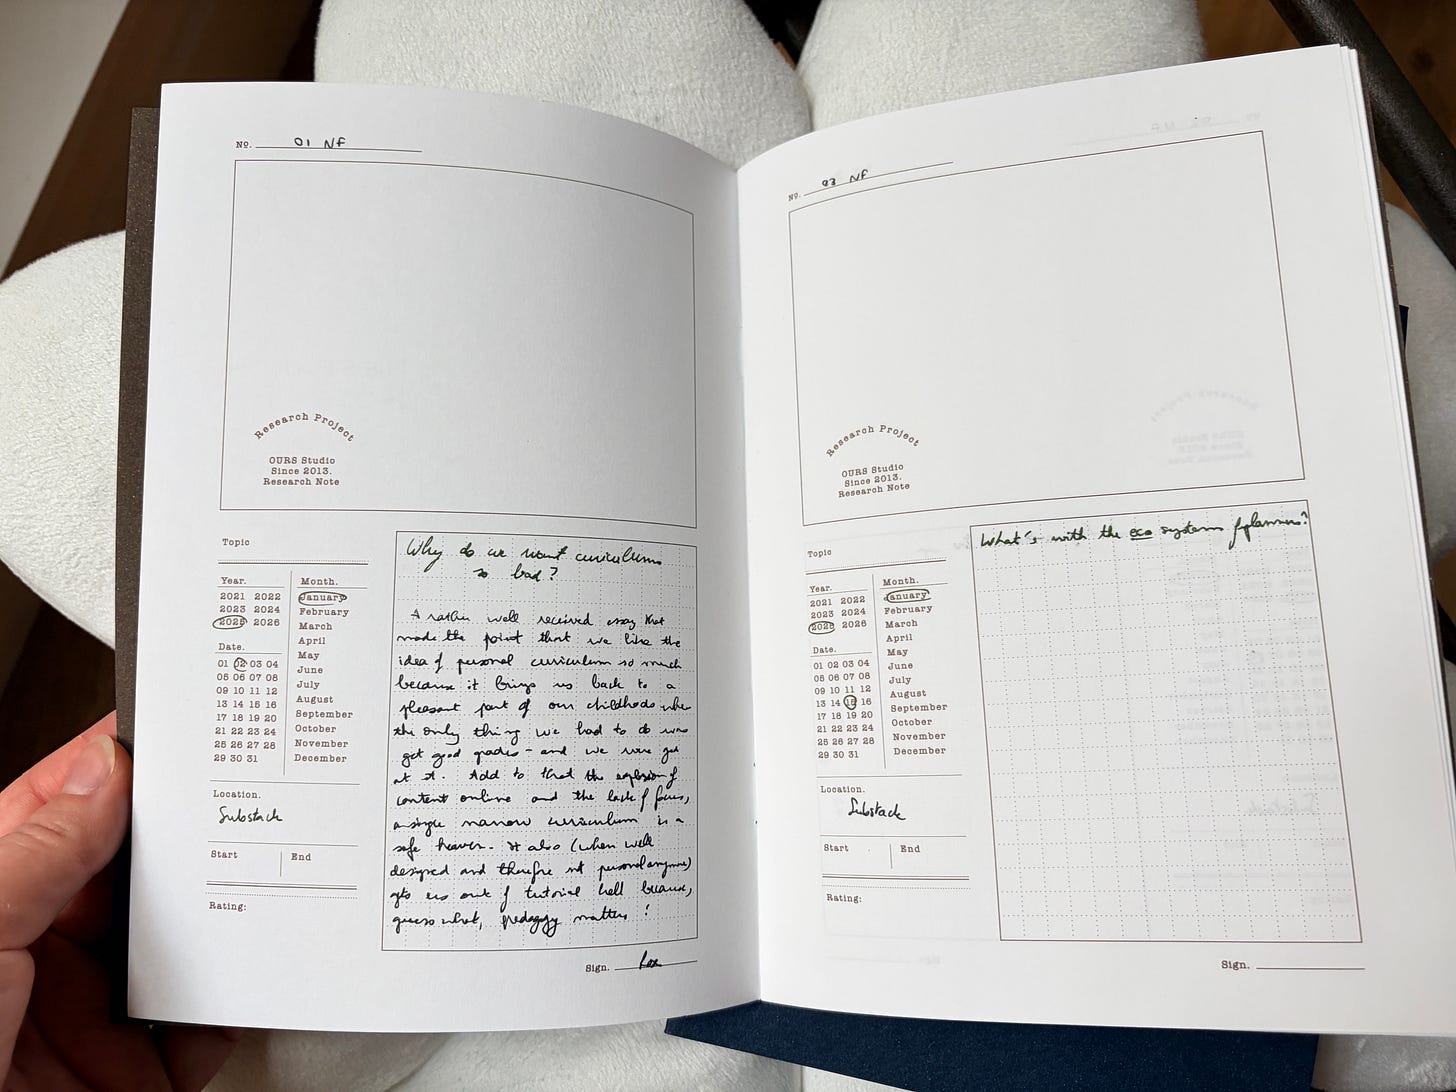 Nº. 01 NF
Research Project
OURS Studio
Since 2013.
Research Note
Topic
Year.
2021 2022
2023 2024
2025 2026
Date.
01 02 03 04
05 06 07 08
09 10 11 12
13 14 15 16
17 18 19 20
21 22 23 24
25 26 27 28
29 30 31
Month.
January
February
March
April
May
June
July
August
September
October
November
December
Location.
Substack
Start
End
Rating:
Why do we want curriculums
so bad?
A rather well received essay that
made the point that we like the
idea of personal curriculum so much
because it brings us back to a
pleasant part of our childhoods when
the only thing we had to do was
get good grades - and we were good
at it. Add to that the explosion of
content online and the lack of focus,
a single narrow curriculum is a
safe heaven. It also (when well
designed and therefore not personal anymore)
gets us out of tutorial hell because,
guess what, pedagogy matters!
Sign.
Nº. 03 NF
Research Project
OURS Studio
Since 2013.
Research Note
Topic
Year.
2021 2022
2023 2024
2025 2026
Date.
01 02 03 04
05 06 07 08
09 10 11 12
13 14 15 16
17 18 19 20
21 22 23 24
25 26 27 28
29 30 31
Month.
January
February
March
April
May
June
July
August
September
October
November
December
Location.
Substack
Start
End
Rating:
What's with the eco systems of planners?
Sign.